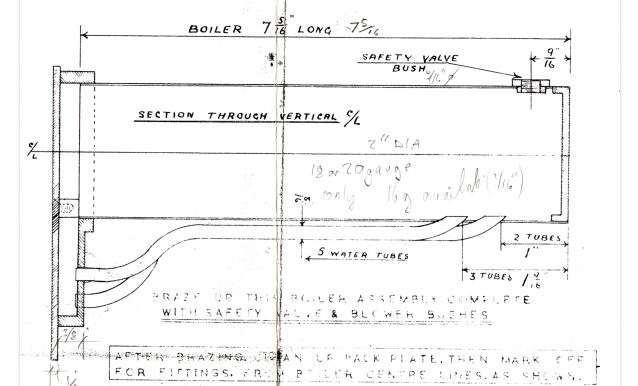 BOILER 7 5/16" LONG 7 5/16
9"
16
SAFETY VALVE
BUSH
SECTION THROUGH VERTICAL C/L
C/L
2" DIA
18 or 20 gauge
only 16g available (1/16")
5
16
2 TUBES
1"
5 WATER TUBES
3 TUBES 1 9/16"
BRAZE UP THIS BOILER ASSEMBLY COMPLETE
WITH SAFETY VALVE & BLOWER BUSHES
7/8
AFTER BRAZING, CLEAN UP BACK PLATE, THEN MARK OFF
FOR FITTINGS, FROM BOILER CENTRE LINES, AS SHOWN.